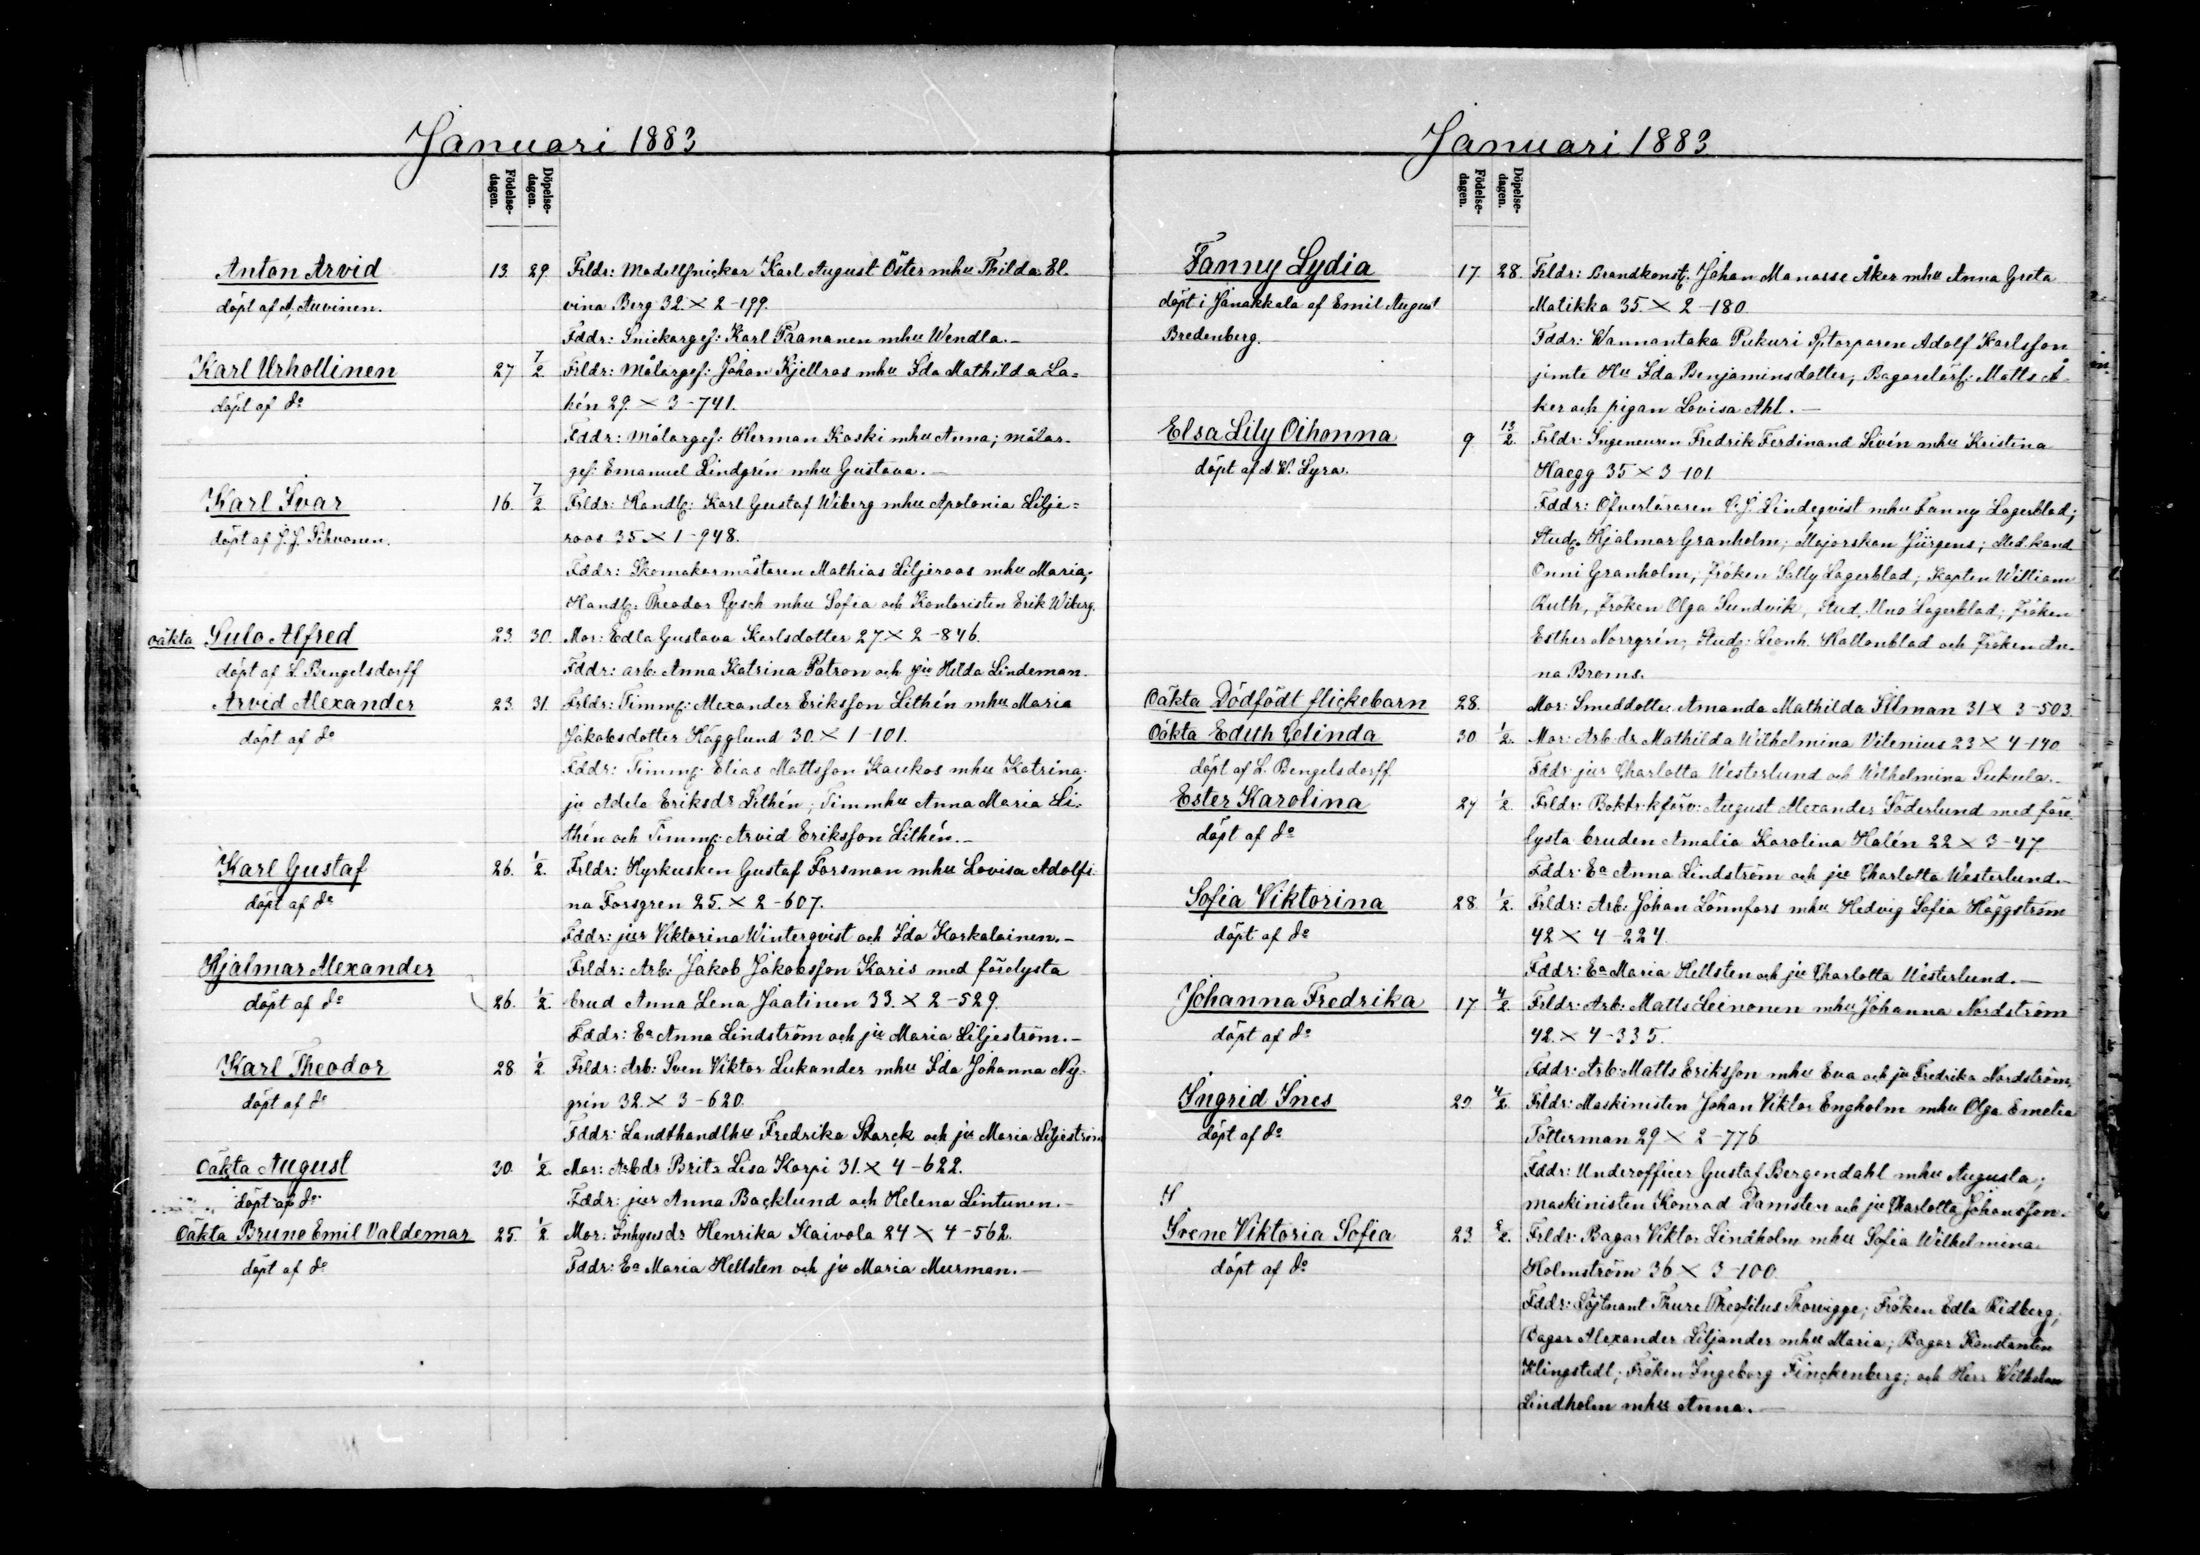 Januari 1883
Födelse-dagen.
Döpelse-dagen.
Anton Arvid 13 29 Frldr: Modellsnickar Karl August Öster mhu Thilda El.
döpt af A. Auvinen. vina Berg 32 × 2-199.
Fddr: Snickarges: Karl Paananen mhu Wendla.—
Karl Urhollinen 27 7/2 Frldr: Målarges: Johan Kjellros mhu Ida Mathilda La=
döpt af do hén 29. × 3-741.
Fddr: Målarges: Herman Koski mhu Anna; målar-
ges: Emanuel Lindgrén mhu Gustava.—
Karl Ivar 16. 7/2 Frldr: Handl: Karl Gustaf Wiberg mhu Apolonia Lilje=
döpt af J. J. Pihvonen. roos 35 × 1-948.
Fddr: Skomakarmästaren Mathias Liljeroos mhu Maria;
Handl: Theodor mhu Sofia och Kontoristen Erik Wiberg.
oäkta Sulo Alfred 23. 30. Mor: Edla Gustava Karlsdotter 27 × 2-846.
döpt af L. Bengelsdorff Fddr: arb: Anna Katrina Patron och pu Hilda Lindeman.
Arvid Alexander 23 31. Frldr: Timm: Alexander Eriksson Lithén mhu Maria
döpt af do Jakobsdotter Hägglund 30. × 1-101.
Fddr: Timm: Elias Mattsson Kaukos mhu Katrina;
ju Adele Eriksdr Lithén; Timmhu Anna Maria Li-
thén och Timm: Arvid Eriksson Lithén.—
Karl Gustaf 26. 1/2. Frldr: Hyrkusken Gustaf Forsman mhu Lovisa Adolfi
döpt af do na Forsgren 25. × 2-607.
Fddr: jur Viktorina Winterqvist och Ida Korkalainen.—
Hjalmar Alexander Frldr: Arb: Jakob Jakobsson Karis med förelysta
döpt af do 26. 1/2. brud Anna Lena Jaatinen 33. × 2-529.
Fddr: Ea Anna Lindström och ju Maria Liljeström.—
Karl Theodor 28 1/2 Frldr: Arb: Sven Viktor Lukander mhu Ida Johanna Ny-
döpt af do grén 32. × 3-620.
Fddr: Landthandlhu Fredrika Starck och ju Maria Liljeström
Oäkta August 30. 1/2. Mor: Arbdr Brita Lisa Korpi 31. × 4-622.
döpt af do Fddr: jur Anna Backlund och Helena Lintunen.—
Oäkta Bruno Emil Valdemar 25. 1/2 Mor: Inhysdr Henrika Kaivola 24 × 4-562.
döpt af do Fddr: Ea Maria Hellsten och ju Maria Murman.—
Januari 1883
Födelse-dagen.
Döpelse-dagen.
Fanny Lydia 17 28. Frldr: Brandkonst: Johan Manasse Åker mhu Anna Greta
döpt i Janakkala af Emil August Matikka 35. × 2-180.
Bredenberg. Fddr: Wannantaka Pukuri Sptorparen Adolf Karlsson
jemte Hu Ida Benjaminsdotter, Bagarelärl: Matts Å-
ker och pigan Lovisa Ahl.—
Elsa Lily Oihonna 9 13/2. Frldr: Ingeneuren Fredrik Ferdinand Sivén mhu Kristina
döpt af A. W. Lyra. Haegg 35 × 3-101.
Fddr: Öfverläraren Lindeqvist mhu Fanny Lagerblad;
Stud. Hjalmar Granholm; Majorskan Jürgens; Med. kand
Onni Granholm; Fröken Sally Lagerblad; Kapten William
Ruth, Fröken Olga Sundvik, Stud. Uno Lagerblad; Fröken
Esther Norrgrén; Stud: Leonh. Hallonblad och Fröken An-
na Broms.
Oäkta Dödfödt flickebarn 28. Mor: Smeddotter Amanda Mathilda Silman 31 × 3-503.
Oäkta Edith Celinda 30 1/2. Mor: Arb.dr Mathilda Wilhelmina Vilenius 23 × 4-140
döpt af L. Bengelsdorff Fddr jur Charlotta Westerlund och Wilhelmina Sukula.—
Ester Karolina 27 1/2. Frldr: Boktr.kförv: August Alexander Söderlund med före-
döpt af do lysta bruden Amalia Karolina Halén 22 × 3-47
Fddr: Ea Anna Lindström och ju Charlotta Westerlund.—
Sofia Viktorina 28 1/2. Frldr: Arb: Johan Lönnfors mhu Hedvig Sofia Häggström
döpt af do 42 × 4-224.
Fddr: Ea Maria Hellsten och ju Charlotta Westerlund.—
Johanna Fredrika 17 4/2. Frldr: Arb: Matts Leinonen mhu Johanna Nordström
döpt af do 42. × 4-335.
Fddr: Arb: Matts Eriksson mhu Eva och ju Fredrika Nordström.
Ingrid Ines 20. 4/2. Frldr: Maskinisten Johan Viktor Engholm mhu Olga Emelia
döpt af do Tötterman 29 × 2-776
Fddr: Underofficer Gustaf Bergendahl mhu Augusta;
H maskinisten Konrad Damsten och ju Charlotta Johansson.
Irene Viktoria Sofia 23. 8/2. Frldr: Bagar Viktor Lindholm mhu Sofia Wilhelmina
döpt af do Holmström 36 × 3-100
Fddr: Löjtnant Thure Theofilus Thorvigge; Fröken Edla Ridberg;
Bagar Alexander Liljander mhu Maria; Bagar Konstantin
Klingstedt; Fröken Ingeborg Finckenberg; och Herr Wilhelm
Lindholm mhu Anna.—